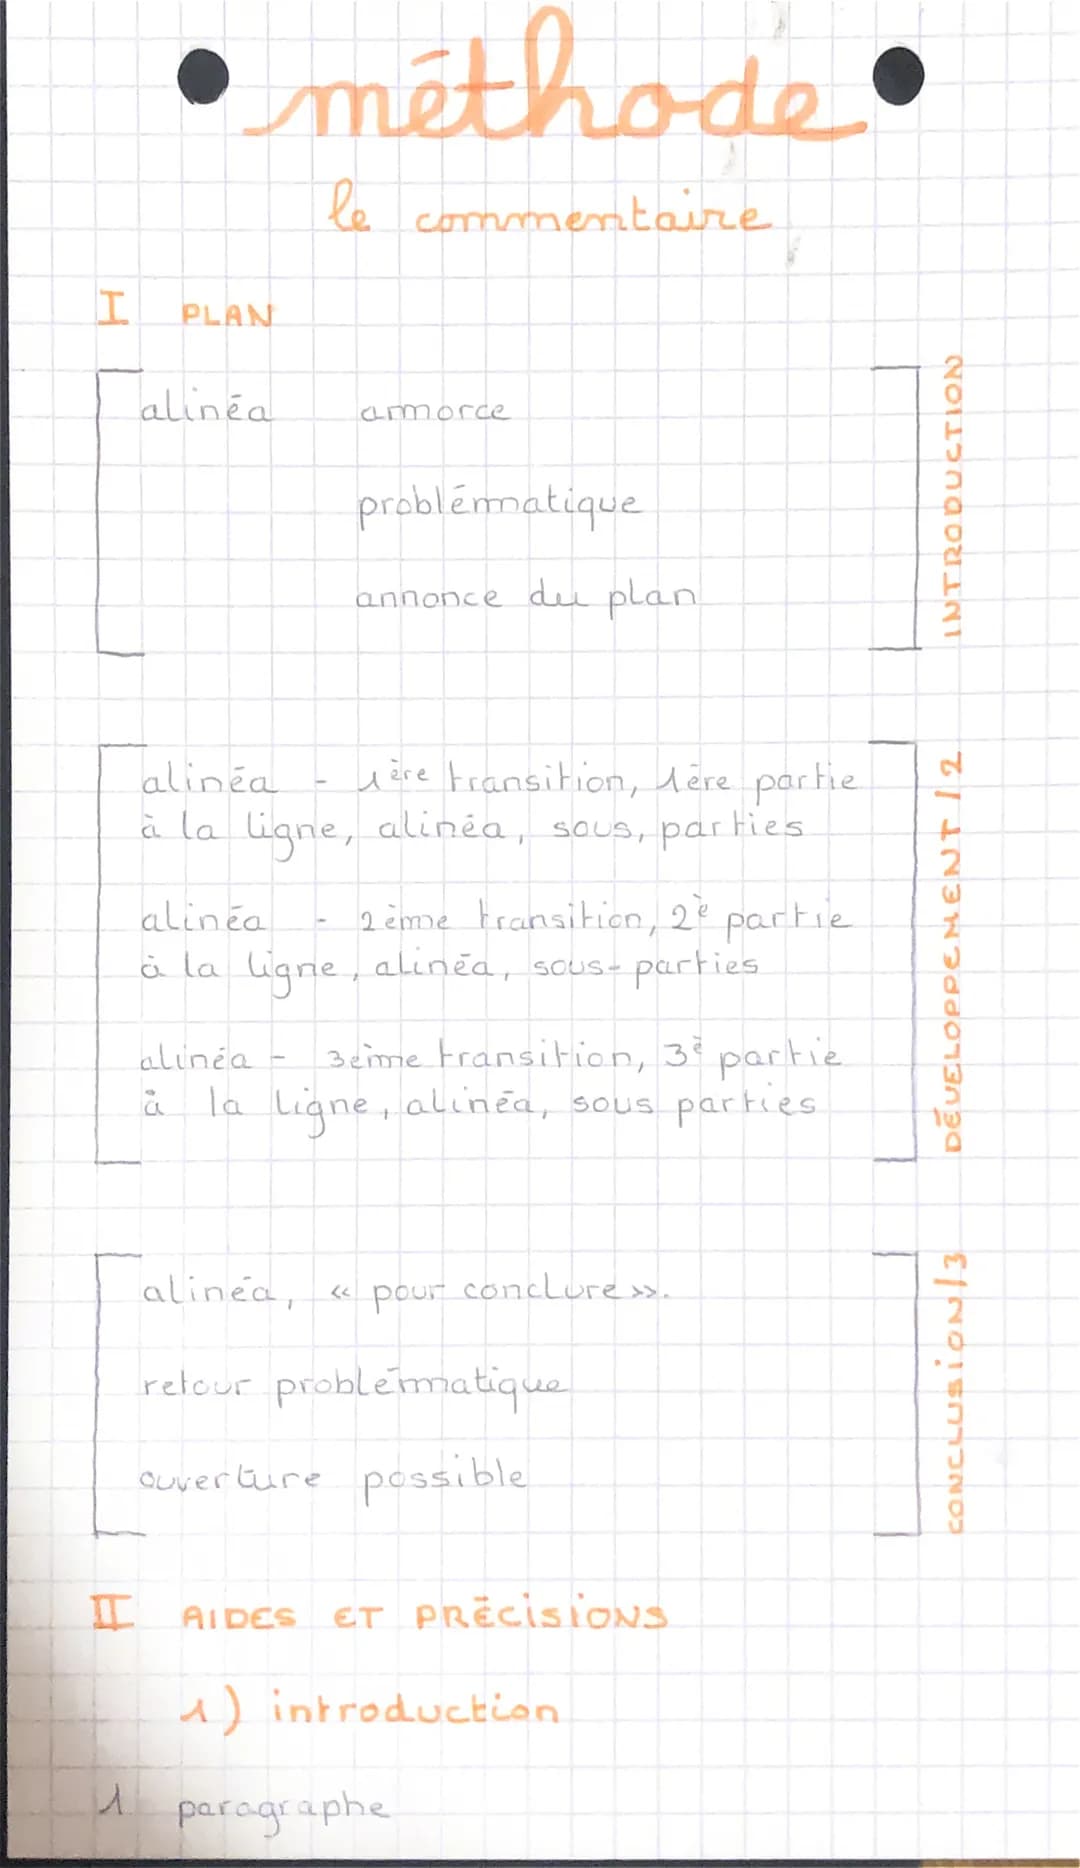 méthode
le commentaire
I PLAN
alinéa amorce
problématique
annonce du plan
INTRODUCTION
alinéa - 1ère transition, 1ère partie
à la ligne, alinéa, sous, parties
alinéa - 2ème transition, 2è partie
à la ligne, alinéa, sous-parties
alinéa - 3eime transition, 3è partie
à la ligne, alinéa, sous parties
DÉVELOPPEMENT /2
alinéa, « pour conclure ».
retour problématique
ouverture possible
CONCLUSION/3
II AIDES ET PRÉCISIONS
1) introduction
1 paragraphe